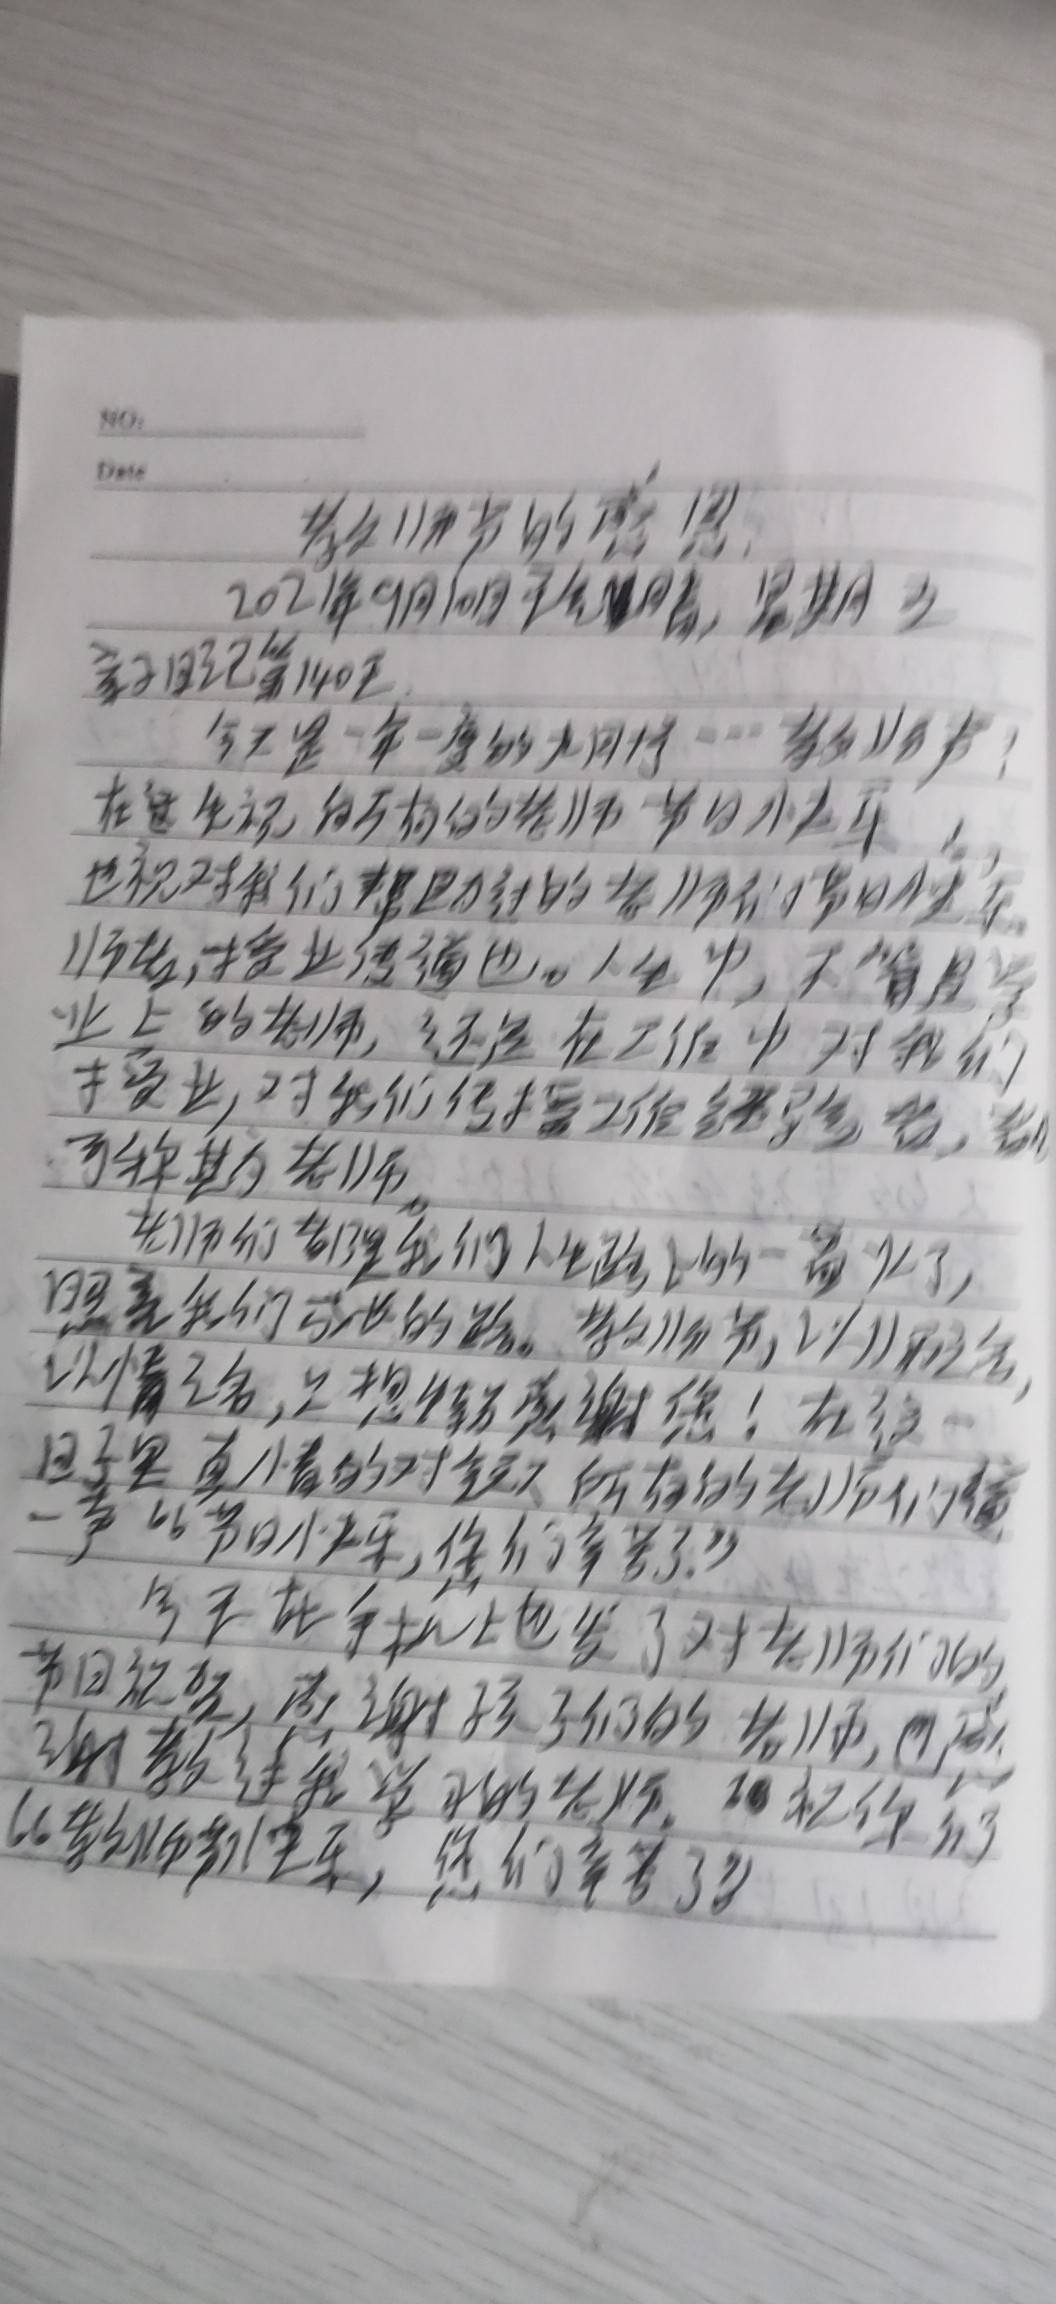 NO:
Date
教师节的感恩
2021年9月10日 天气晴, 星期五
亲子日记第140天
今天是一年一度的九月好……教师节!
在这先祝 所有的老师 节日快乐,
也祝对我们帮助过的老师们节日快乐。
师者,授业传道也。人生中,不管是学
业上的老师,还是在工作中对我们
授业,对我们传授工作经验者,都
可称其为老师。
老师们都是我们人生路上的一首火了,
照亮我们前进的路。教师节,以师之名,
以情之名,只想特别感谢您!在这一
日子里 真情的对 所有的老师们道
一声“节日快乐,您们辛苦了”
今天在手机上也发了对老师们的
节日祝贺,感谢孩子们的老师,感
谢教过我学习的老师。祝你们
“教师节快乐,您们辛苦了”